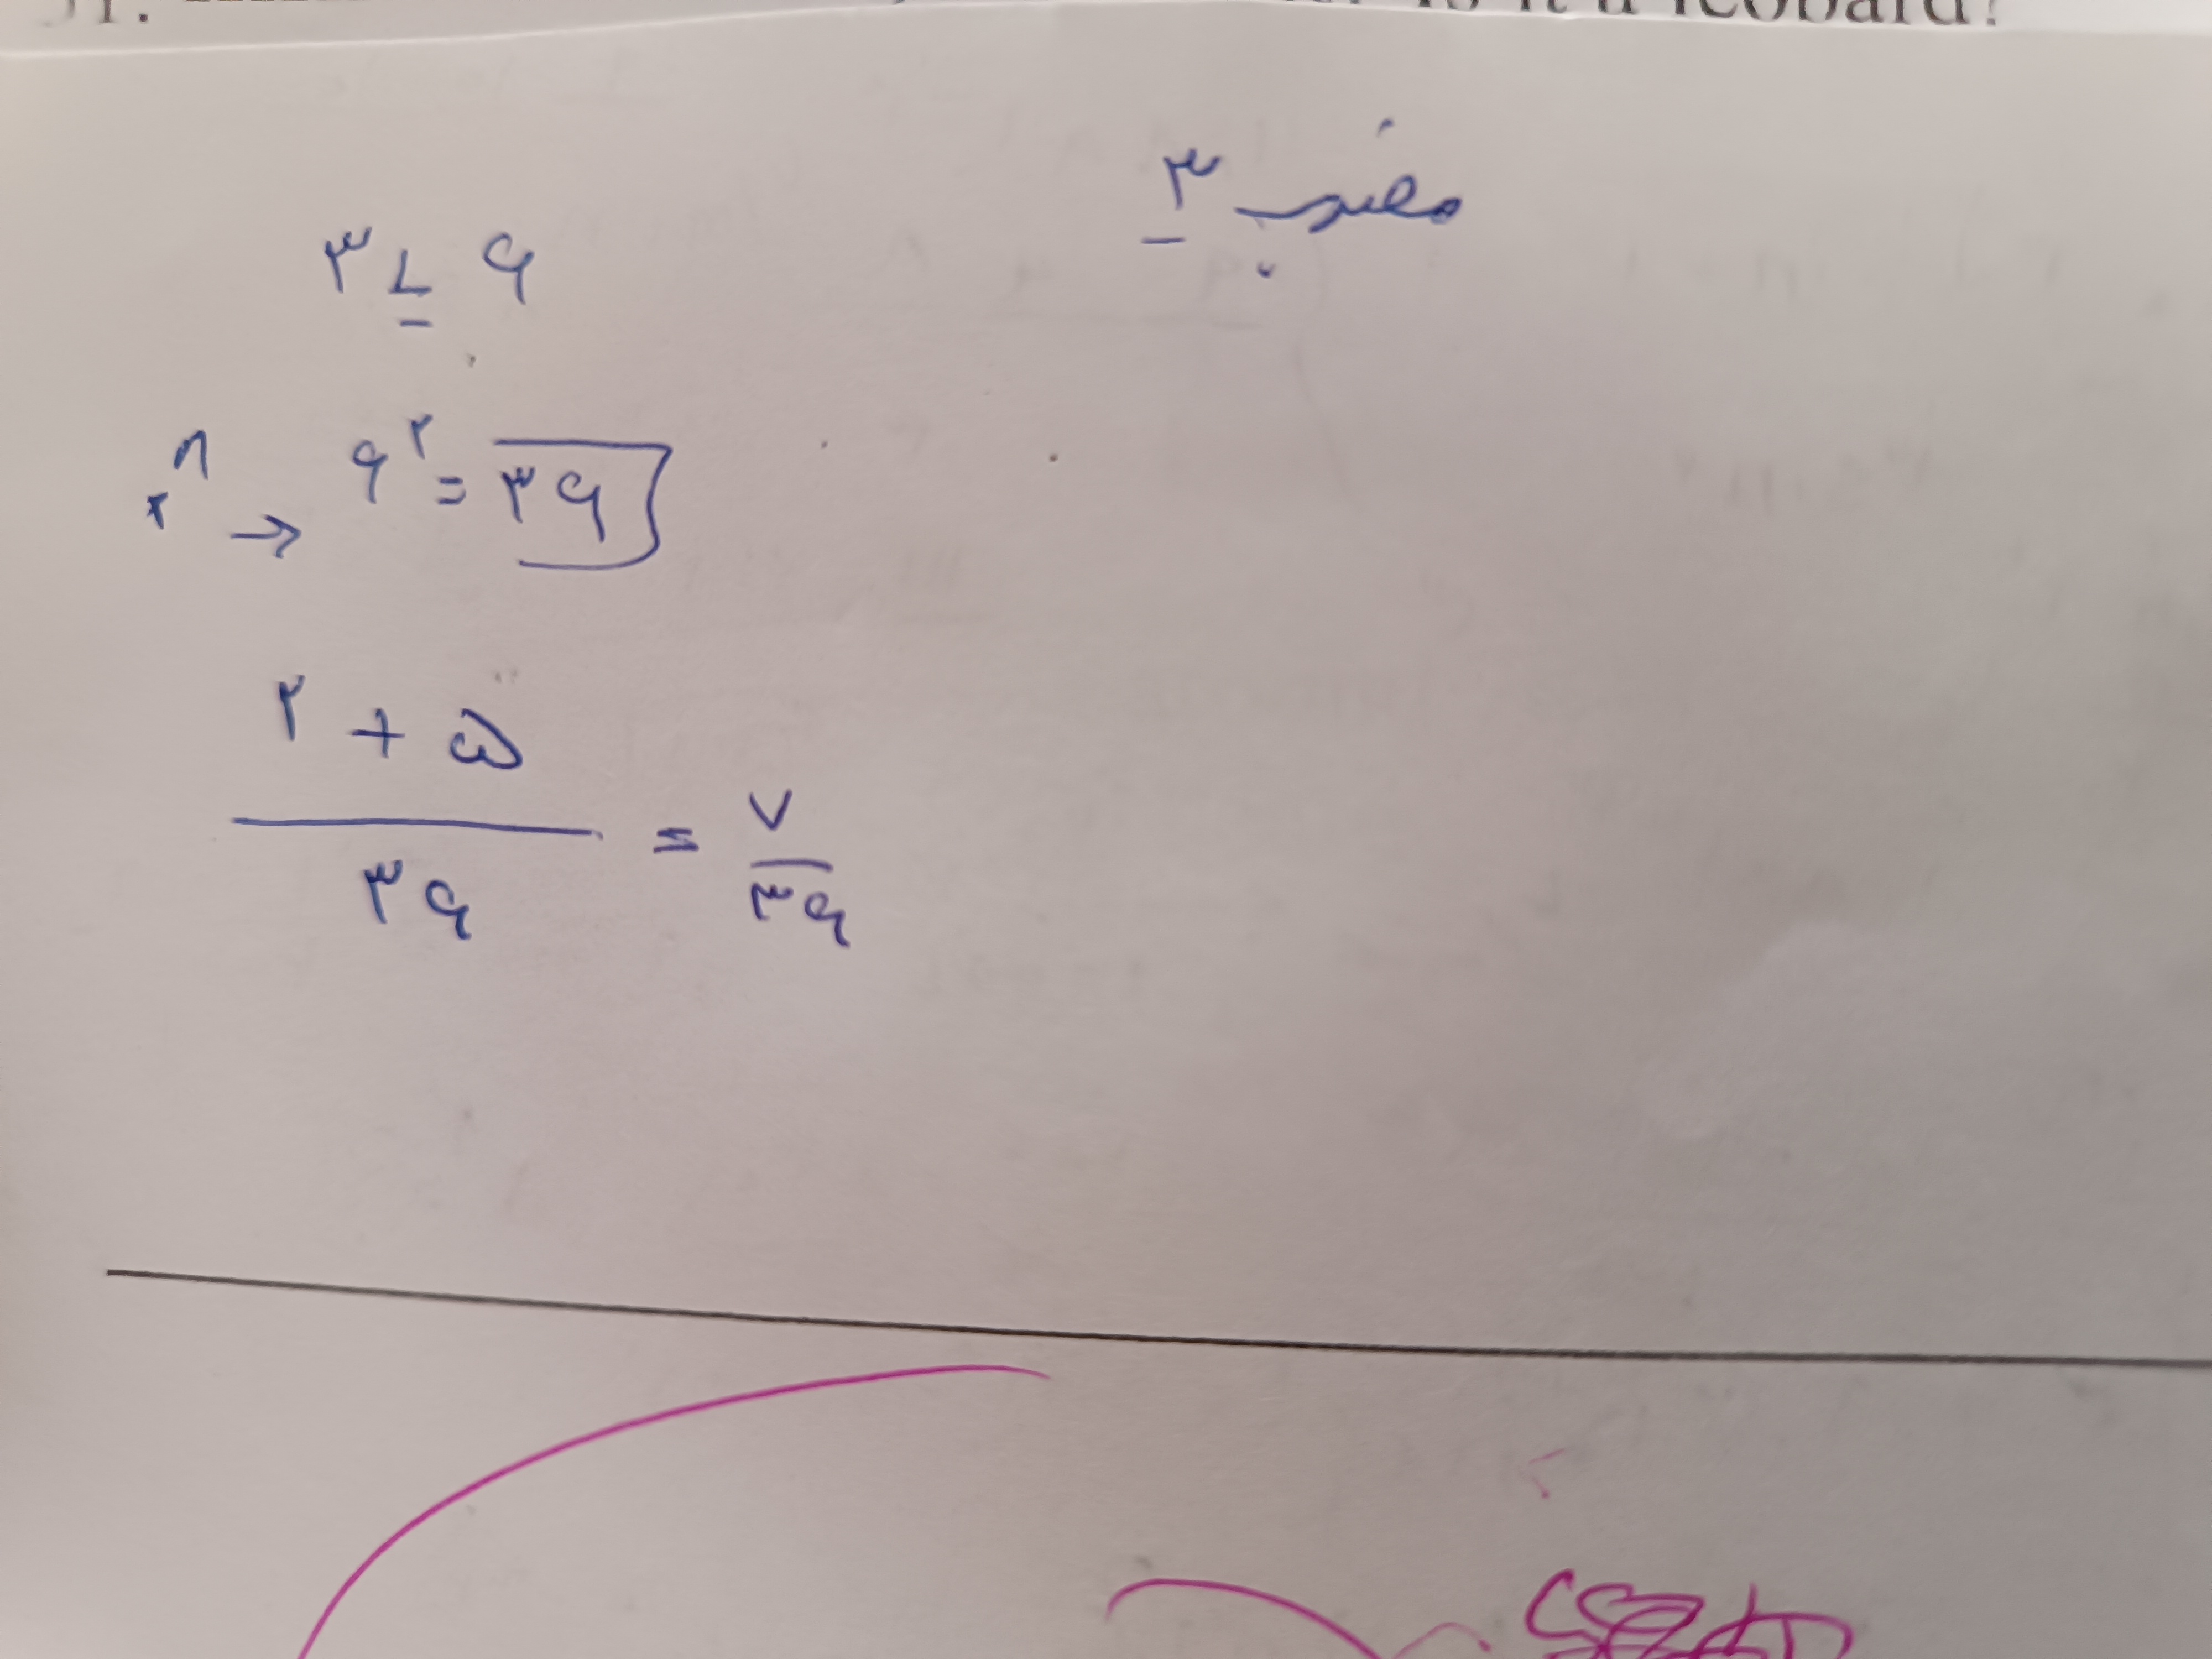 is it a leopard?
مضرب ۳
۳ یا ۶
n
۲ → ۶^۲ = ۳۶
۲ + ۵
۳۶
= ۷/۳۶